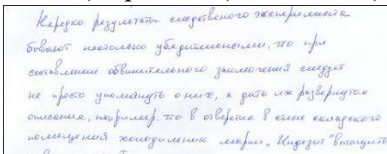 Нередко результаты следственного эксперимента
бывают настолько убедительными, что при
составлении обвинительного заключения следует
не просто упомянуть о них, а дать их развернутое
описание, например, что в отверстие в стене складского
помещения холодильник марки „Индезит" вытащить